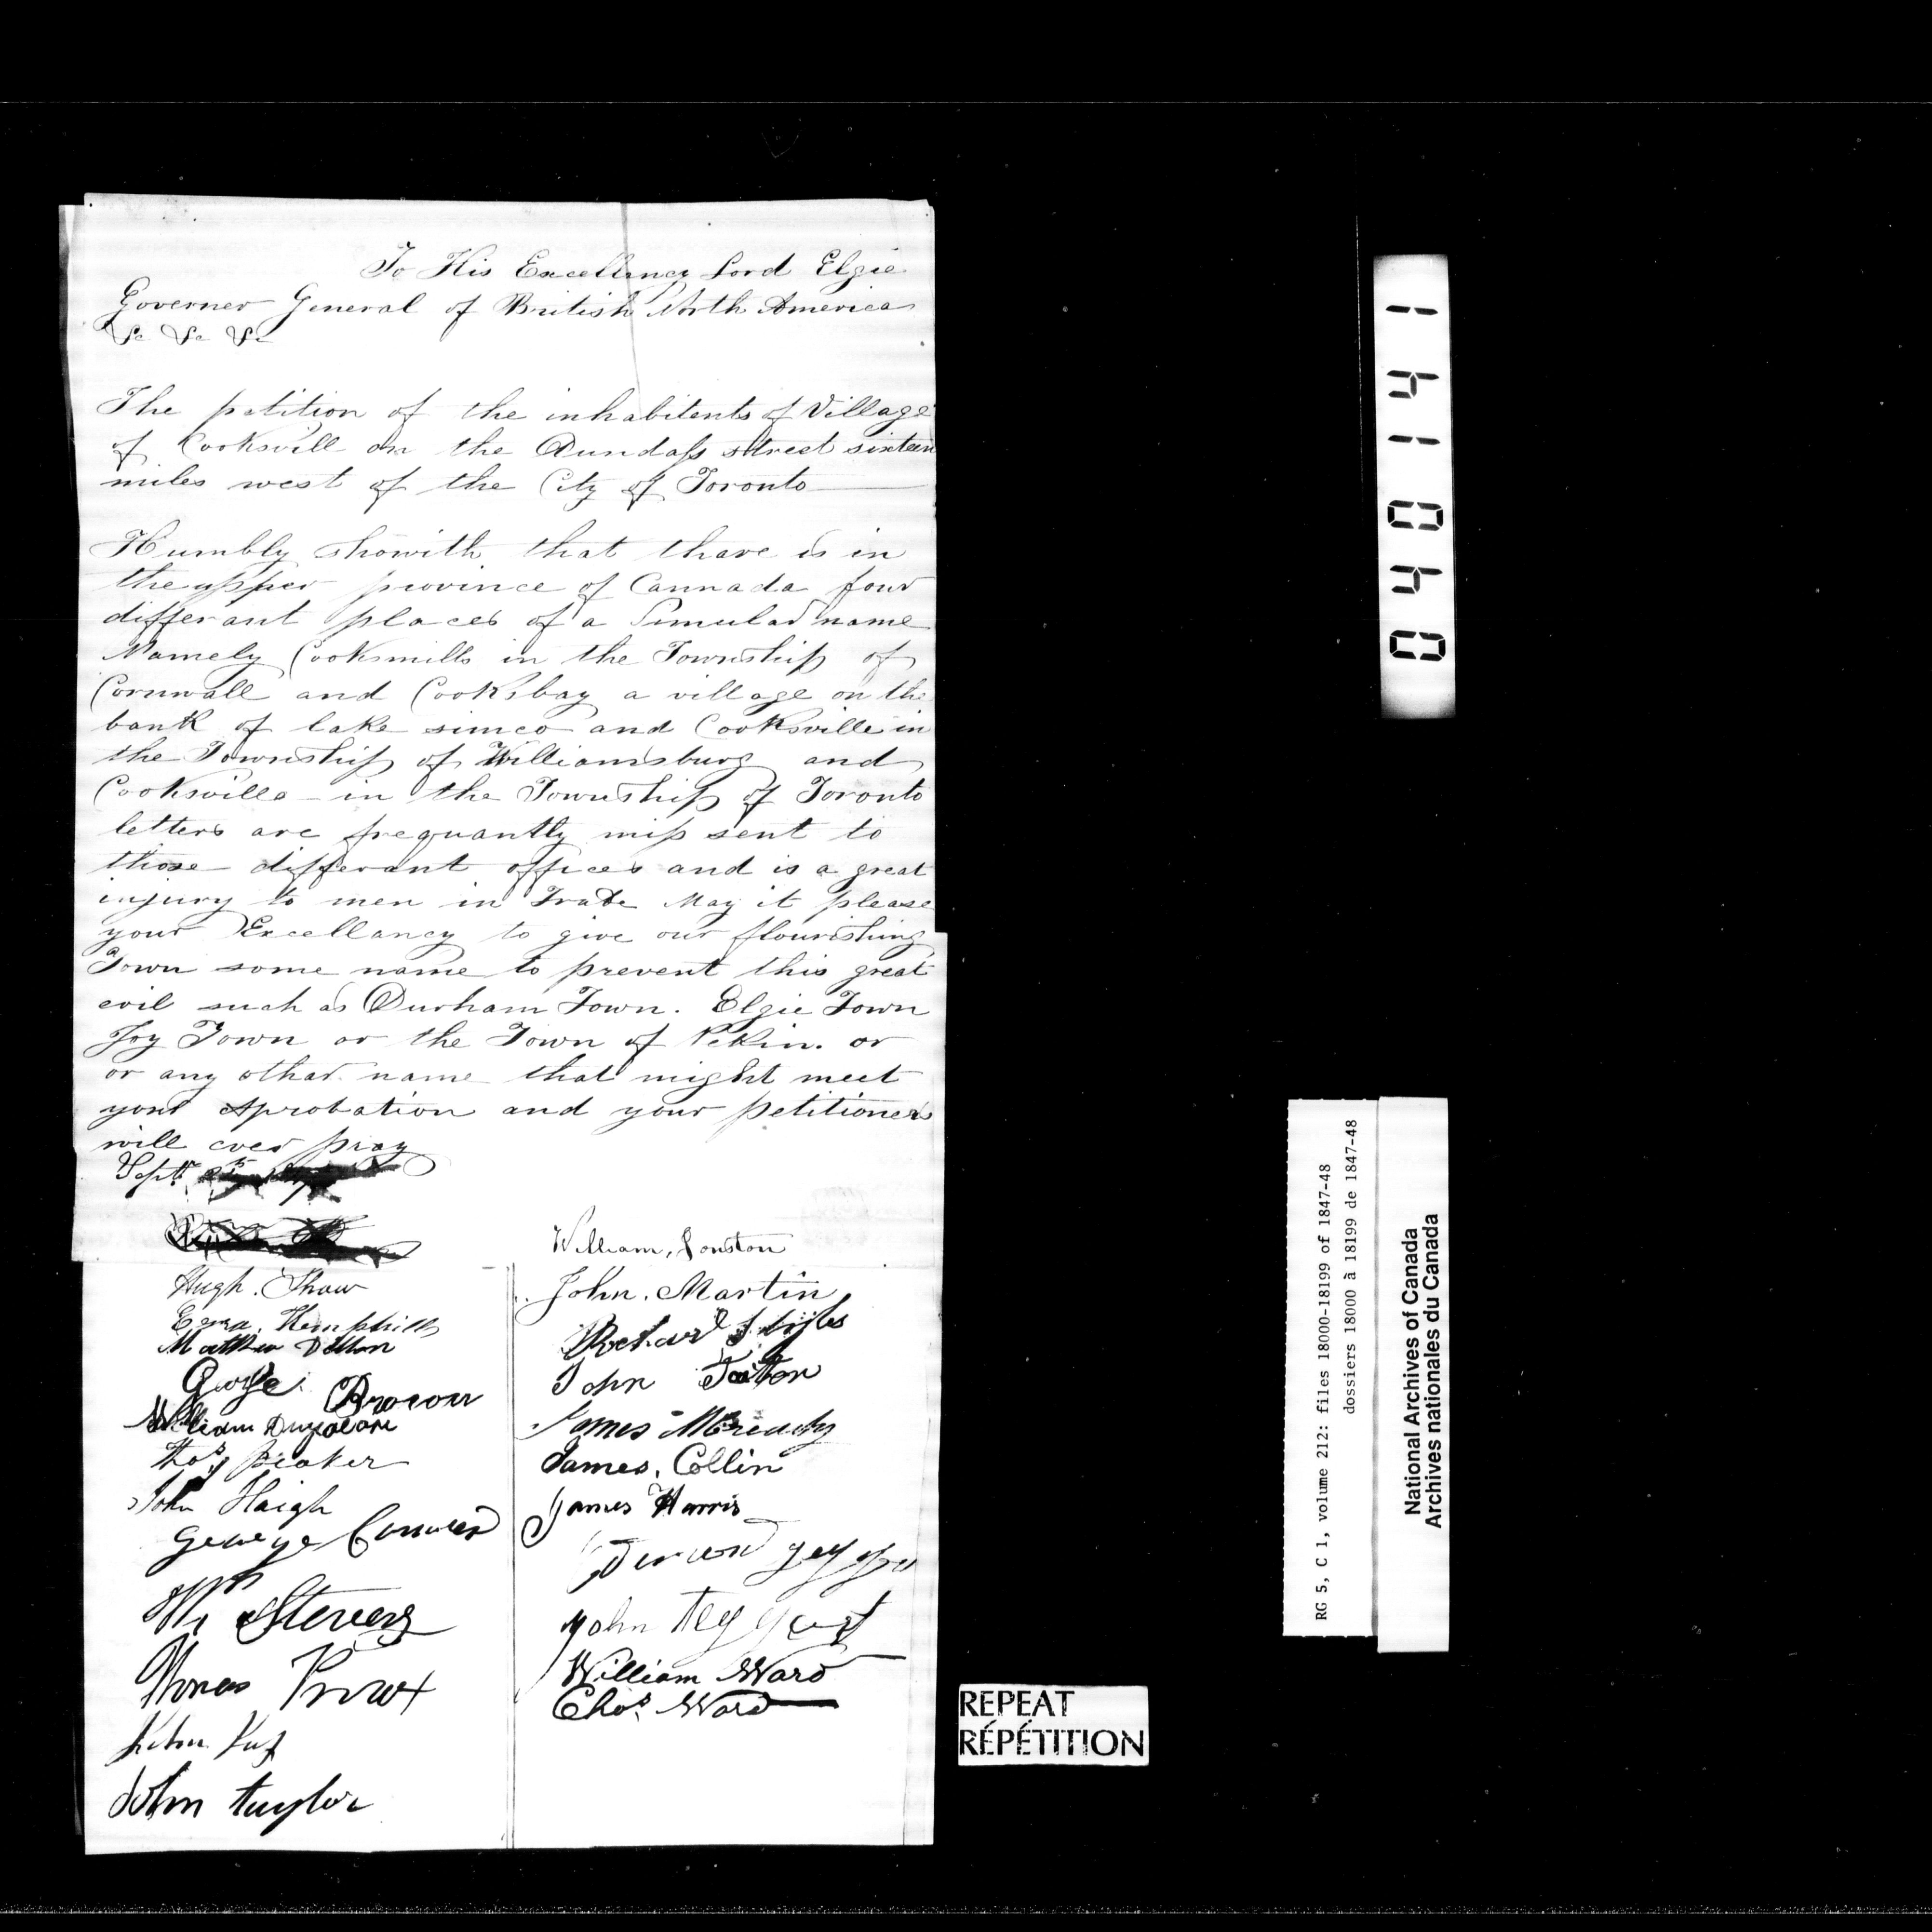 To His Excellency Lord Elgie
Governer General of British North America
&c &c &c
The petition of the inhabitents of Village
of Cooksvill on the Dundass street sixteen
miles west of the City of Toronto
Humbly showith that thare is in
the upper province of Cannada four
differant places of a Simular name
Namely Cooksmills in the Township of
Cornwall and Cooksbay a village on the
bank of lake simco and Cooksville in
the Township of Williamsburg and
Cooksville in the Township of Toronto
letters are frequantly miss sent to
those differant offices and is a great
injury to men in Trade May it please
your Excellancy to give our flourishing
Town some name to prevent this great
evil such as Durham Town. Elgie Town
Joy Town or the Town of Pekin. or
or any other name that might meet
your Aprobation and your petitioners
will ever pray
Sept
William,
Hugh. Shaw
John. Martin
Ezra. Hemphill
Richard
Matthew
John
George Brown
James
William
James. Collin
Thos
James Harris
John Haigh
George
John
Wm Stevens
William Ward
Thomas
Chas. Ward
John
John taylor
041041
RG 5, C 1, volume 212: files 18000-18199 of 1847-48
dossiers 18000 à 18199 de 1847-48
National Archives of Canada
Archives nationales du Canada
REPEAT
RÉPÉTITION